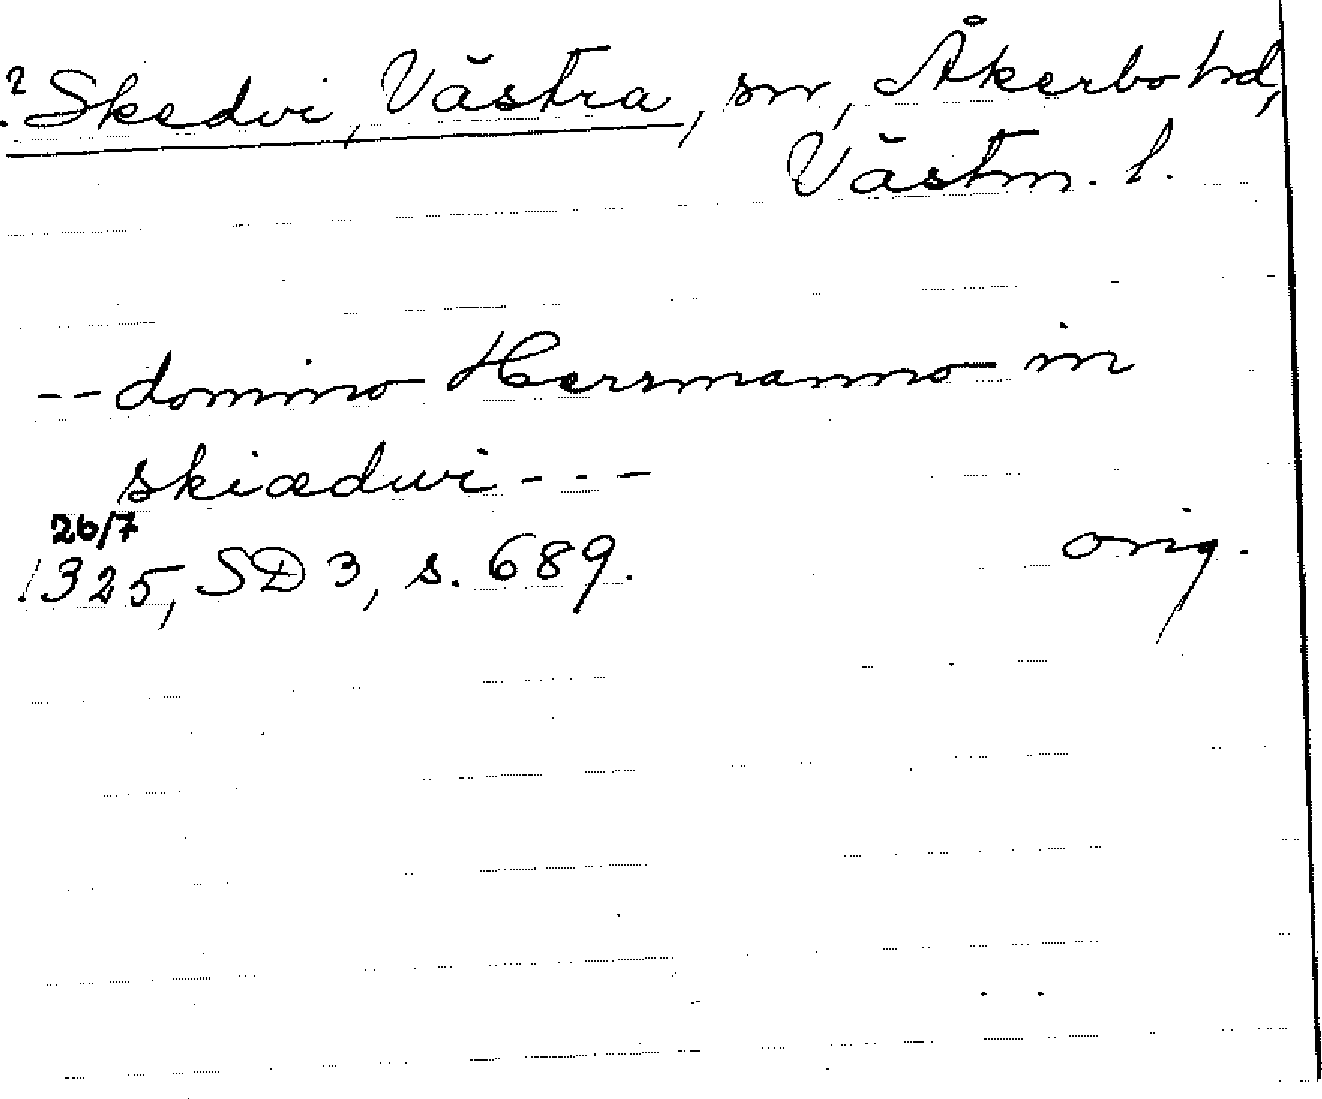 ? Skedvi, Västra, sn, Åkerbo hd,
Västm. l.
-- domino Hersmanno in
skiædwi ---
26/7
1325, SD 3, s. 689. orig.